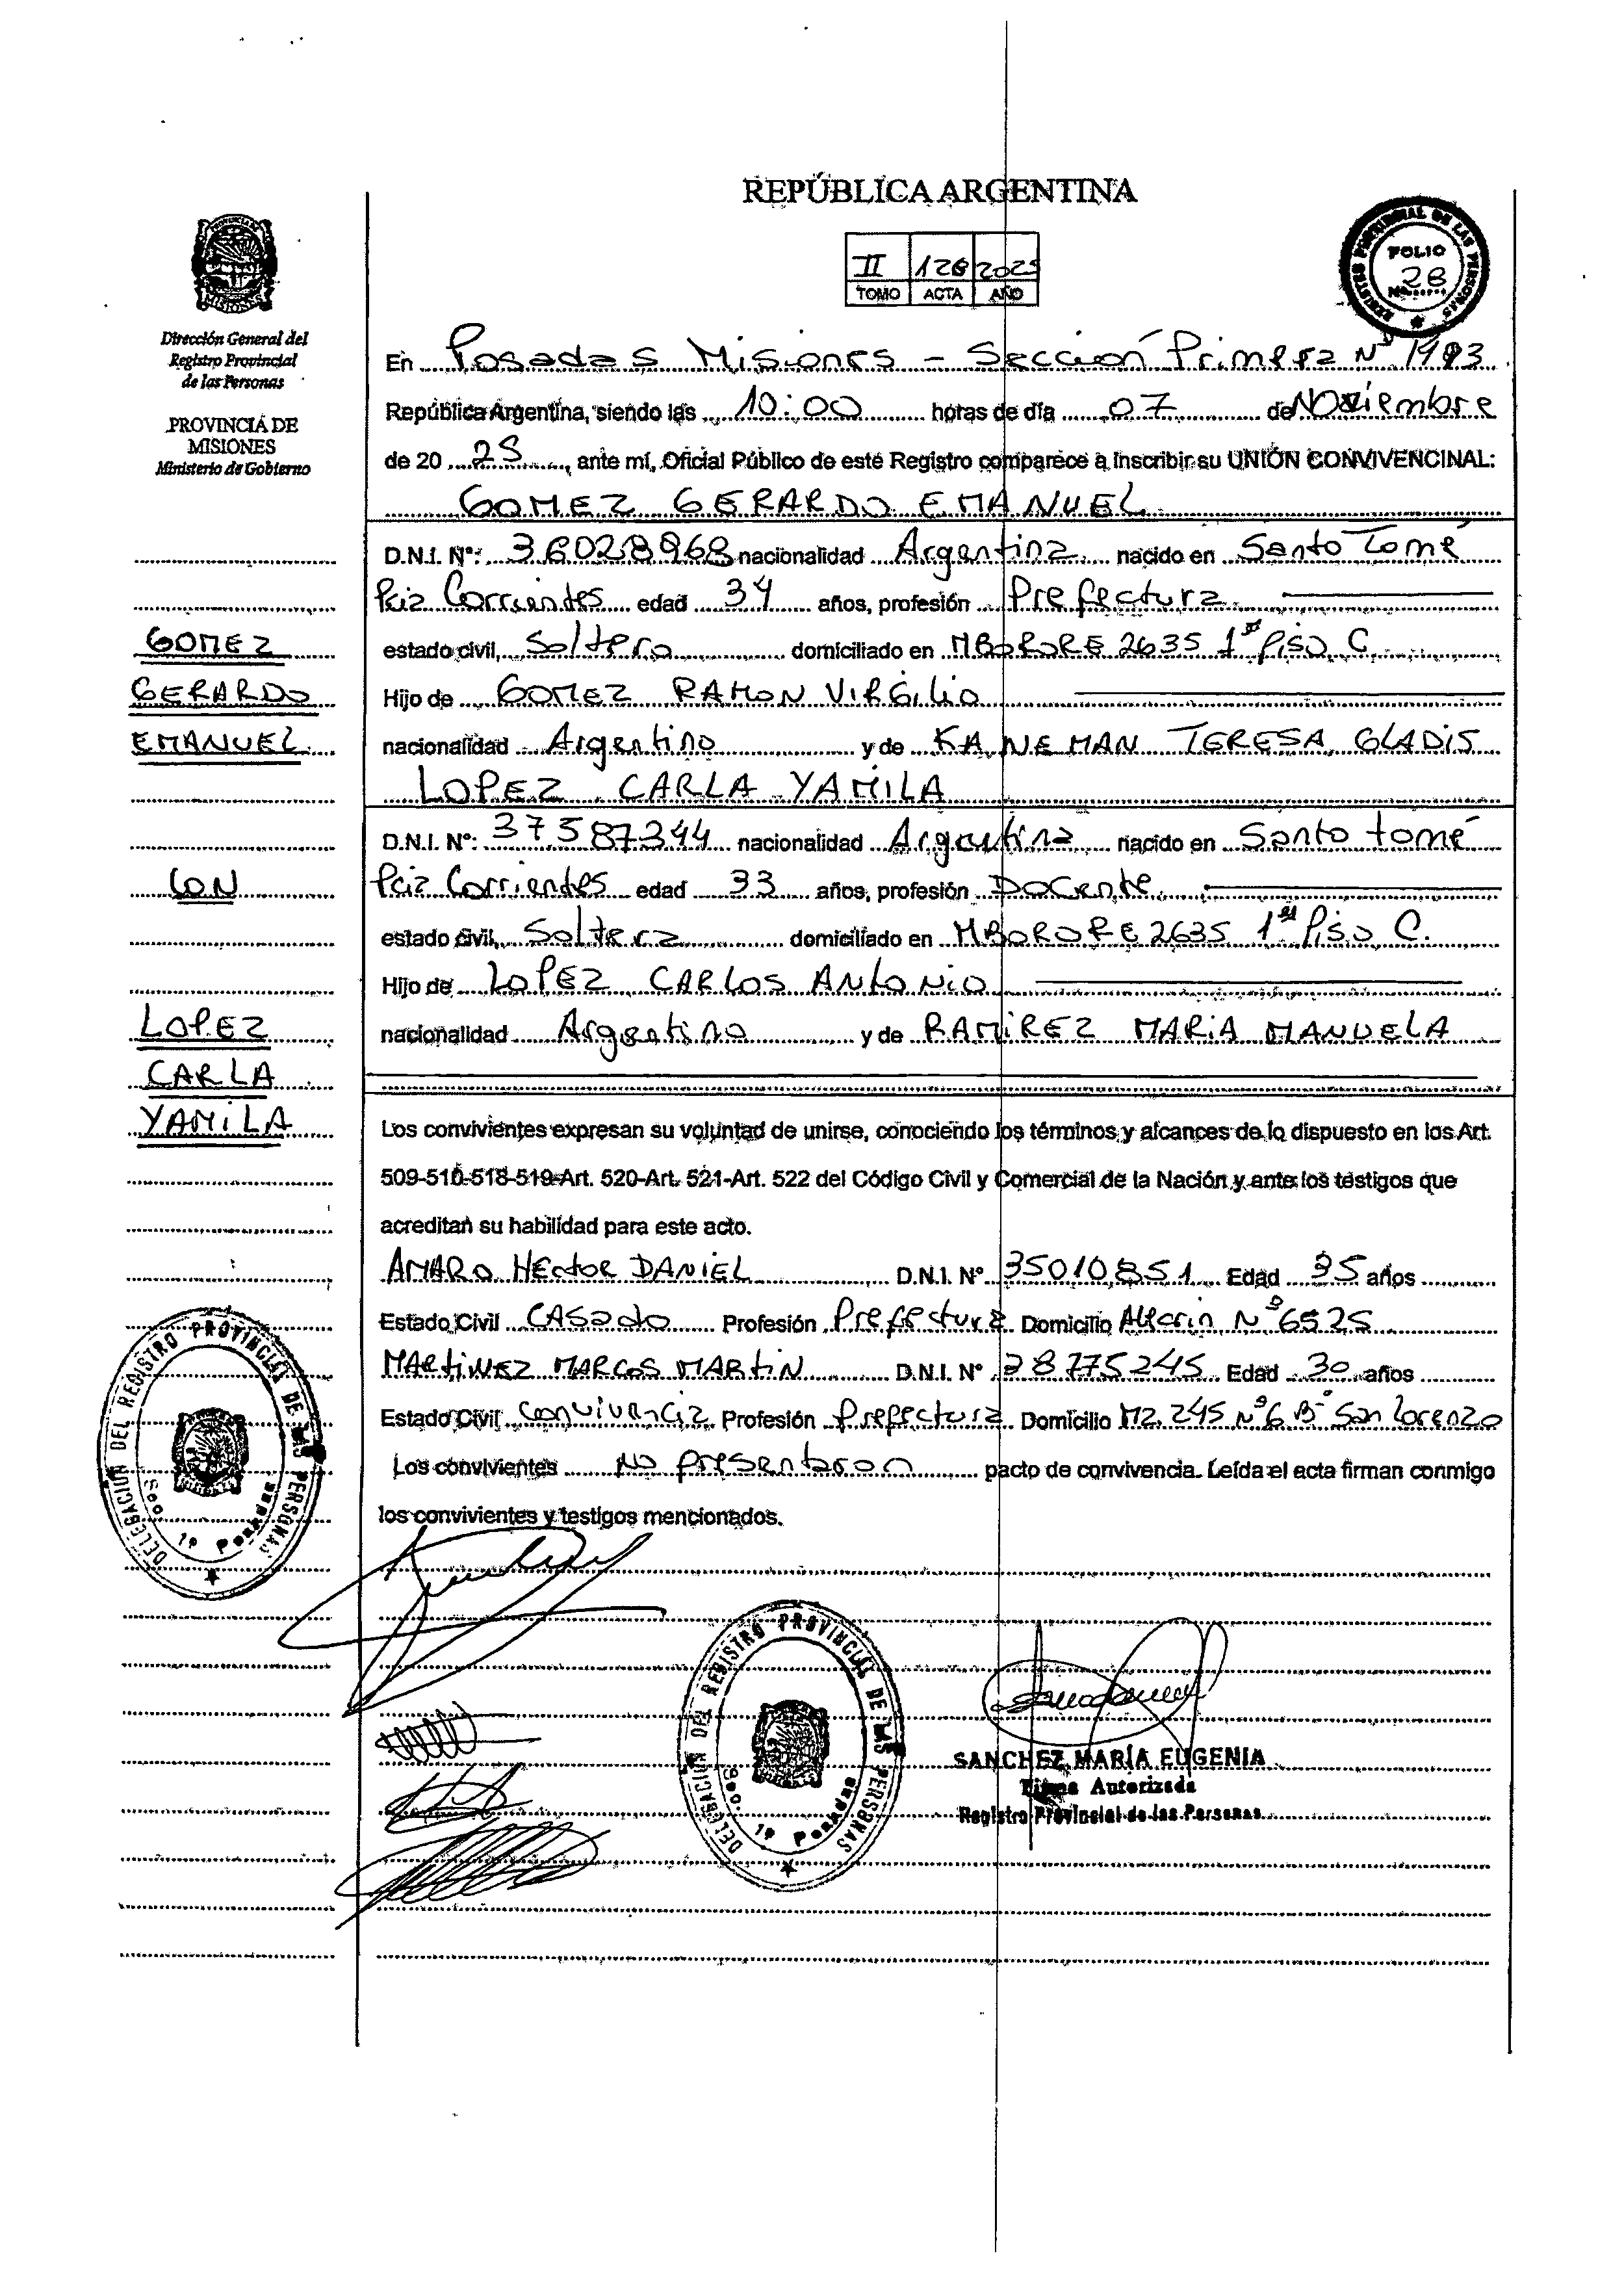 REPÚBLICA ARGENTINA
II 126 2025
TOMO ACTA AÑO
REGISTRO PROVINCIAL DE LAS PERSONAS
FOLIO
28
Nº
Dirección General del
Registro Provincial
de las Personas
PROVINCIA DE
MISIONES
Ministerio de Gobierno
GOMEZ
GERARDO
EMANUEL
CON
LOPEZ
CARLA
YAMILA
En Posadas Misiones - Sección Primera Nº
República Argentina, siendo las 10:00 horas de día 07 de Noviembre
de 20 25, ante mí, Oficial Público de este Registro comparece a inscribir su UNIÓN CONVIVENCINAL:
GOMEZ GERARDO EMANUEL
D.N.I. Nº: 36028968 nacionalidad Argentina nacido en Santo Tomé
Pcia Corrientes edad 34 años, profesión Prefectura
estado civil, Soltero domiciliado en MBORORE 2635 1º Piso C.
Hijo de GOMEZ RAMON VIRGILIO
nacionalidad Argentino y de KAINEMAN TERESA GLADIS
LOPEZ CARLA YAMILA
D.N.I. Nº: 37587344 nacionalidad Argentina nacido en Santo tomé
Pcia Corrientes edad 33 años, profesión Docente
estado civil, Soltera domiciliado en MBORORE 2635 1er Piso C.
Hijo de LOPEZ CARLOS ANTONIO
nacionalidad Argentino y de RAMIREZ MARIA MANUELA
Los convivientes expresan su voluntad de unirse, conociendo los términos y alcances de lo dispuesto en los Art.
509-510-518-519-Art. 520-Art. 521-Art. 522 del Código Civil y Comercial de la Nación y ante los testigos que
acreditan su habilidad para este acto.
AMARO HECTOR DANIEL D.N.I. Nº 35010851 Edad 35 años
Estado Civil CASADO Profesión Prefectura Domicilio Nº 6525
MARTINEZ MARCOS MARTIN D.N.I. Nº 38775245 Edad 30 años
Estado Civil convivencia Profesión Prefectura Domicilio MZ 245 Nº 6 Bº San Lorenzo
Los convivientes No presentaron pacto de convivencia. Leída el acta firman conmigo
los convivientes y testigos mencionados.
DELEGACION DEL REGISTRO PROVINCIAL DE LAS PERSONAS
Sec. 1ª Posadas
DELEGACION DEL REGISTRO PROVINCIAL DE LAS PERSONAS
Sec. 1ª Posadas
SANCHEZ MARÍA EUGENIA
Firma Autorizada
Registro Provincial de las Personas